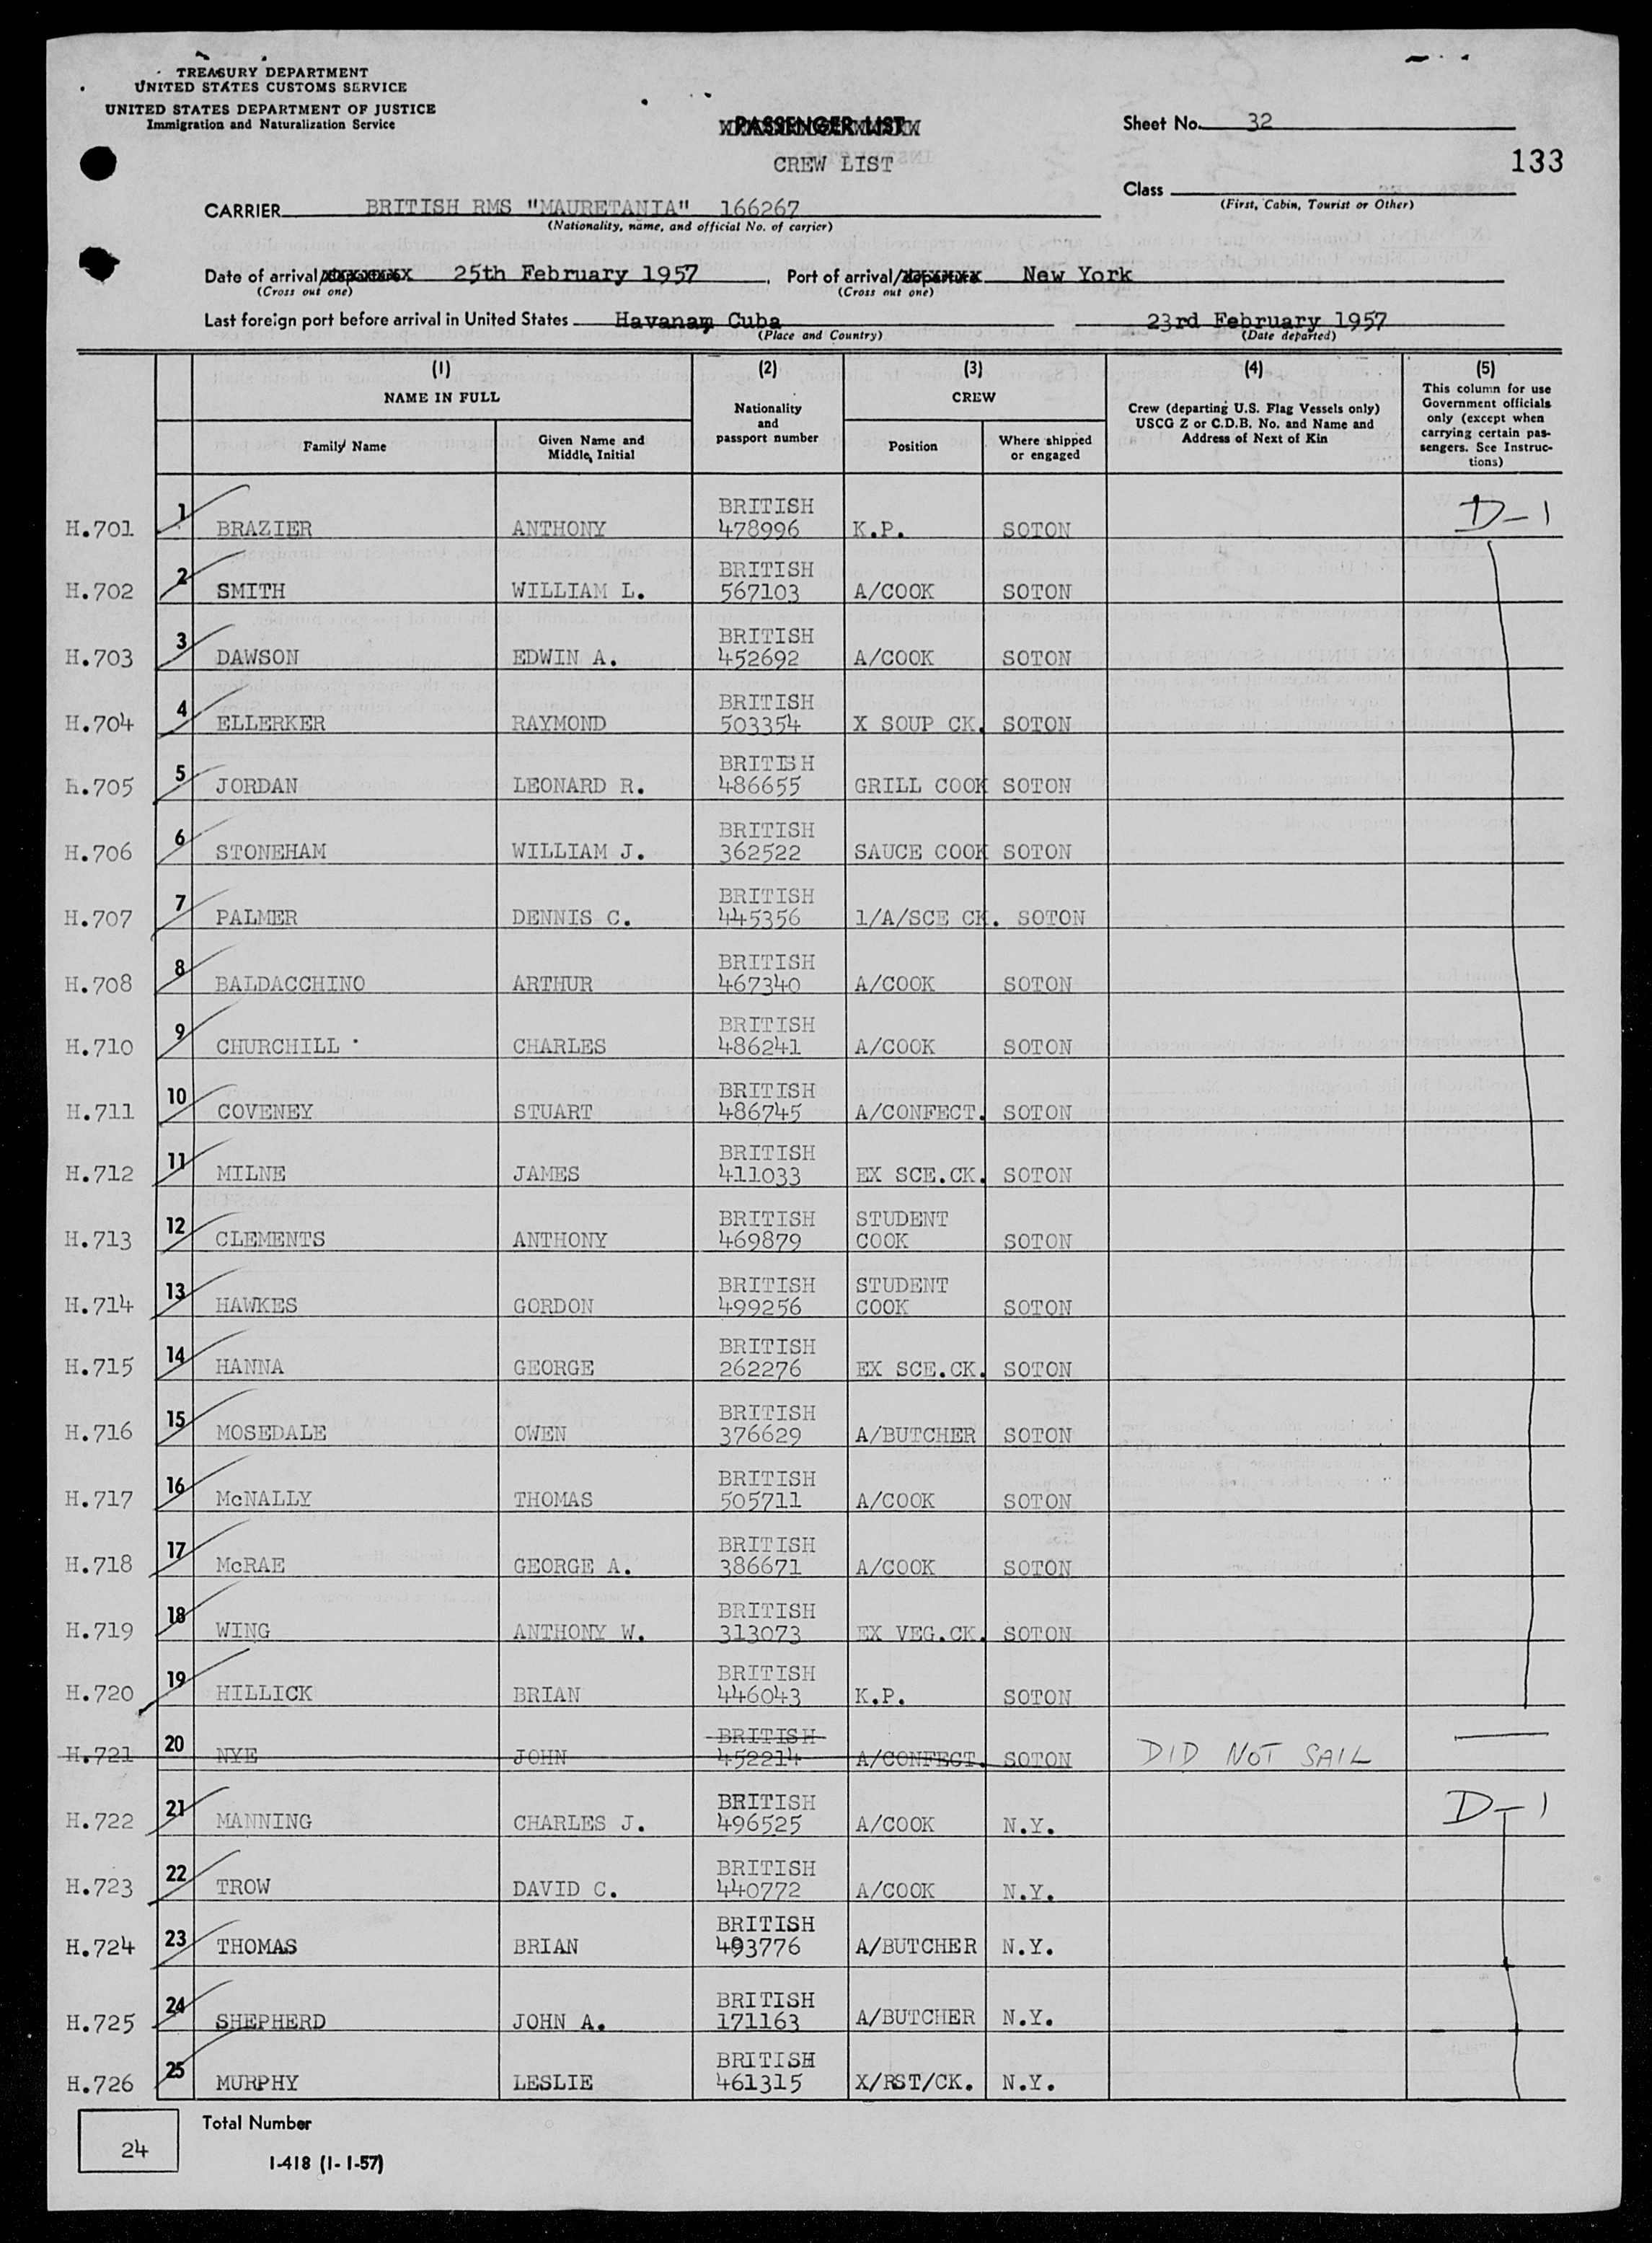 TREASURY DEPARTMENT
UNITED STATES CUSTOMS SERVICE
UNITED STATES DEPARTMENT OF JUSTICE
Immigration and Naturalization Service
PASSENGER LIST
CREW LIST
Sheet No. 32
133
Class
(First, Cabin, Tourist or Other)
CARRIER BRITISH RMS "MAURETANIA" 166267
(Nationality, name, and official No. of carrier)
Date of arrival/departure 25th February 1957, Port of arrival/departure New York
(Cross out one) (Cross out one)
Last foreign port before arrival in United States Havana, Cuba 23rd February 1957
(Place and Country) (Date departed)
(1) (2) (3) (4) (5)
NAME IN FULL
Nationality and passport number
CREW
Crew (departing U.S. Flag Vessels only) USCG Z or C.D.B. No. and Name and Address of Next of Kin
This column for use Government officials only (except when carrying certain passengers. See Instructions)
Family Name
Given Name and Middle Initial
Position
Where shipped or engaged
H.701 1 BRAZIER ANTHONY BRITISH 478996 K.P. SOTON D-1
H.702 2 SMITH WILLIAM L. BRITISH 567103 A/COOK SOTON
H.703 3 DAWSON EDWIN A. BRITISH 452692 A/COOK SOTON
H.704 4 ELLERKER RAYMOND BRITISH 503354 X SOUP CK. SOTON
h.705 5 JORDAN LEONARD R. BRITISH 486655 GRILL COOK SOTON
H.706 6 STONEHAM WILLIAM J. BRITISH 362522 SAUCE COOK SOTON
H.707 7 PALMER DENNIS C. BRITISH 445356 1/A/SCE CK. SOTON
H.708 8 BALDACCHINO ARTHUR BRITISH 467340 A/COOK SOTON
H.710 9 CHURCHILL CHARLES BRITISH 486241 A/COOK SOTON
H.711 10 COVENEY STUART BRITISH 486745 A/CONFECT. SOTON
H.712 11 MILNE JAMES BRITISH 411033 EX SCE.CK. SOTON
H.713 12 CLEMENTS ANTHONY BRITISH 469879 STUDENT COOK SOTON
H.714 13 HAWKES GORDON BRITISH 499256 STUDENT COOK SOTON
H.715 14 HANNA GEORGE BRITISH 262276 EX SCE.CK. SOTON
H.716 15 MOSEDALE OWEN BRITISH 376629 A/BUTCHER SOTON
H.717 16 McNALLY THOMAS BRITISH 505711 A/COOK SOTON
H.718 17 McRAE GEORGE A. BRITISH 386671 A/COOK SOTON
H.719 18 WING ANTHONY W. BRITISH 313073 EX VEG.CK. SOTON
H.720 19 HILLICK BRIAN BRITISH 446043 K.P. SOTON
H.721 20 NYE JOHN BRITISH 452214 A/CONFECT. SOTON DID NOT SAIL
H.722 21 MANNING CHARLES J. BRITISH 496525 A/COOK N.Y. D-1
H.723 22 TROW DAVID C. BRITISH 440772 A/COOK N.Y.
H.724 23 THOMAS BRIAN BRITISH 493776 A/BUTCHER N.Y.
H.725 24 SHEPHERD JOHN A. BRITISH 171163 A/BUTCHER N.Y.
H.726 25 MURPHY LESLIE BRITISH 461315 X/RST/CK. N.Y.
24 Total Number
I-418 (1-1-57)